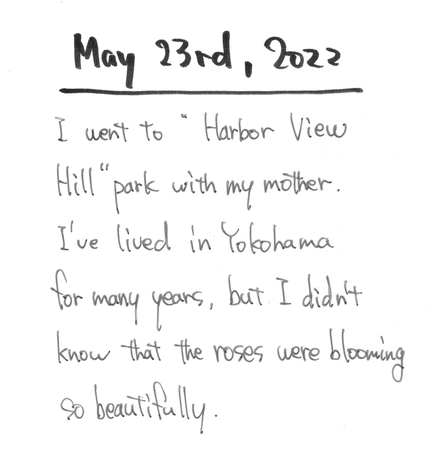 May 23rd, 2022
I went to "Harbor View
Hill" park with my mother.
I've lived in Yokohama
for many years, but I didn't
know that the roses were blooming
so beautifully.